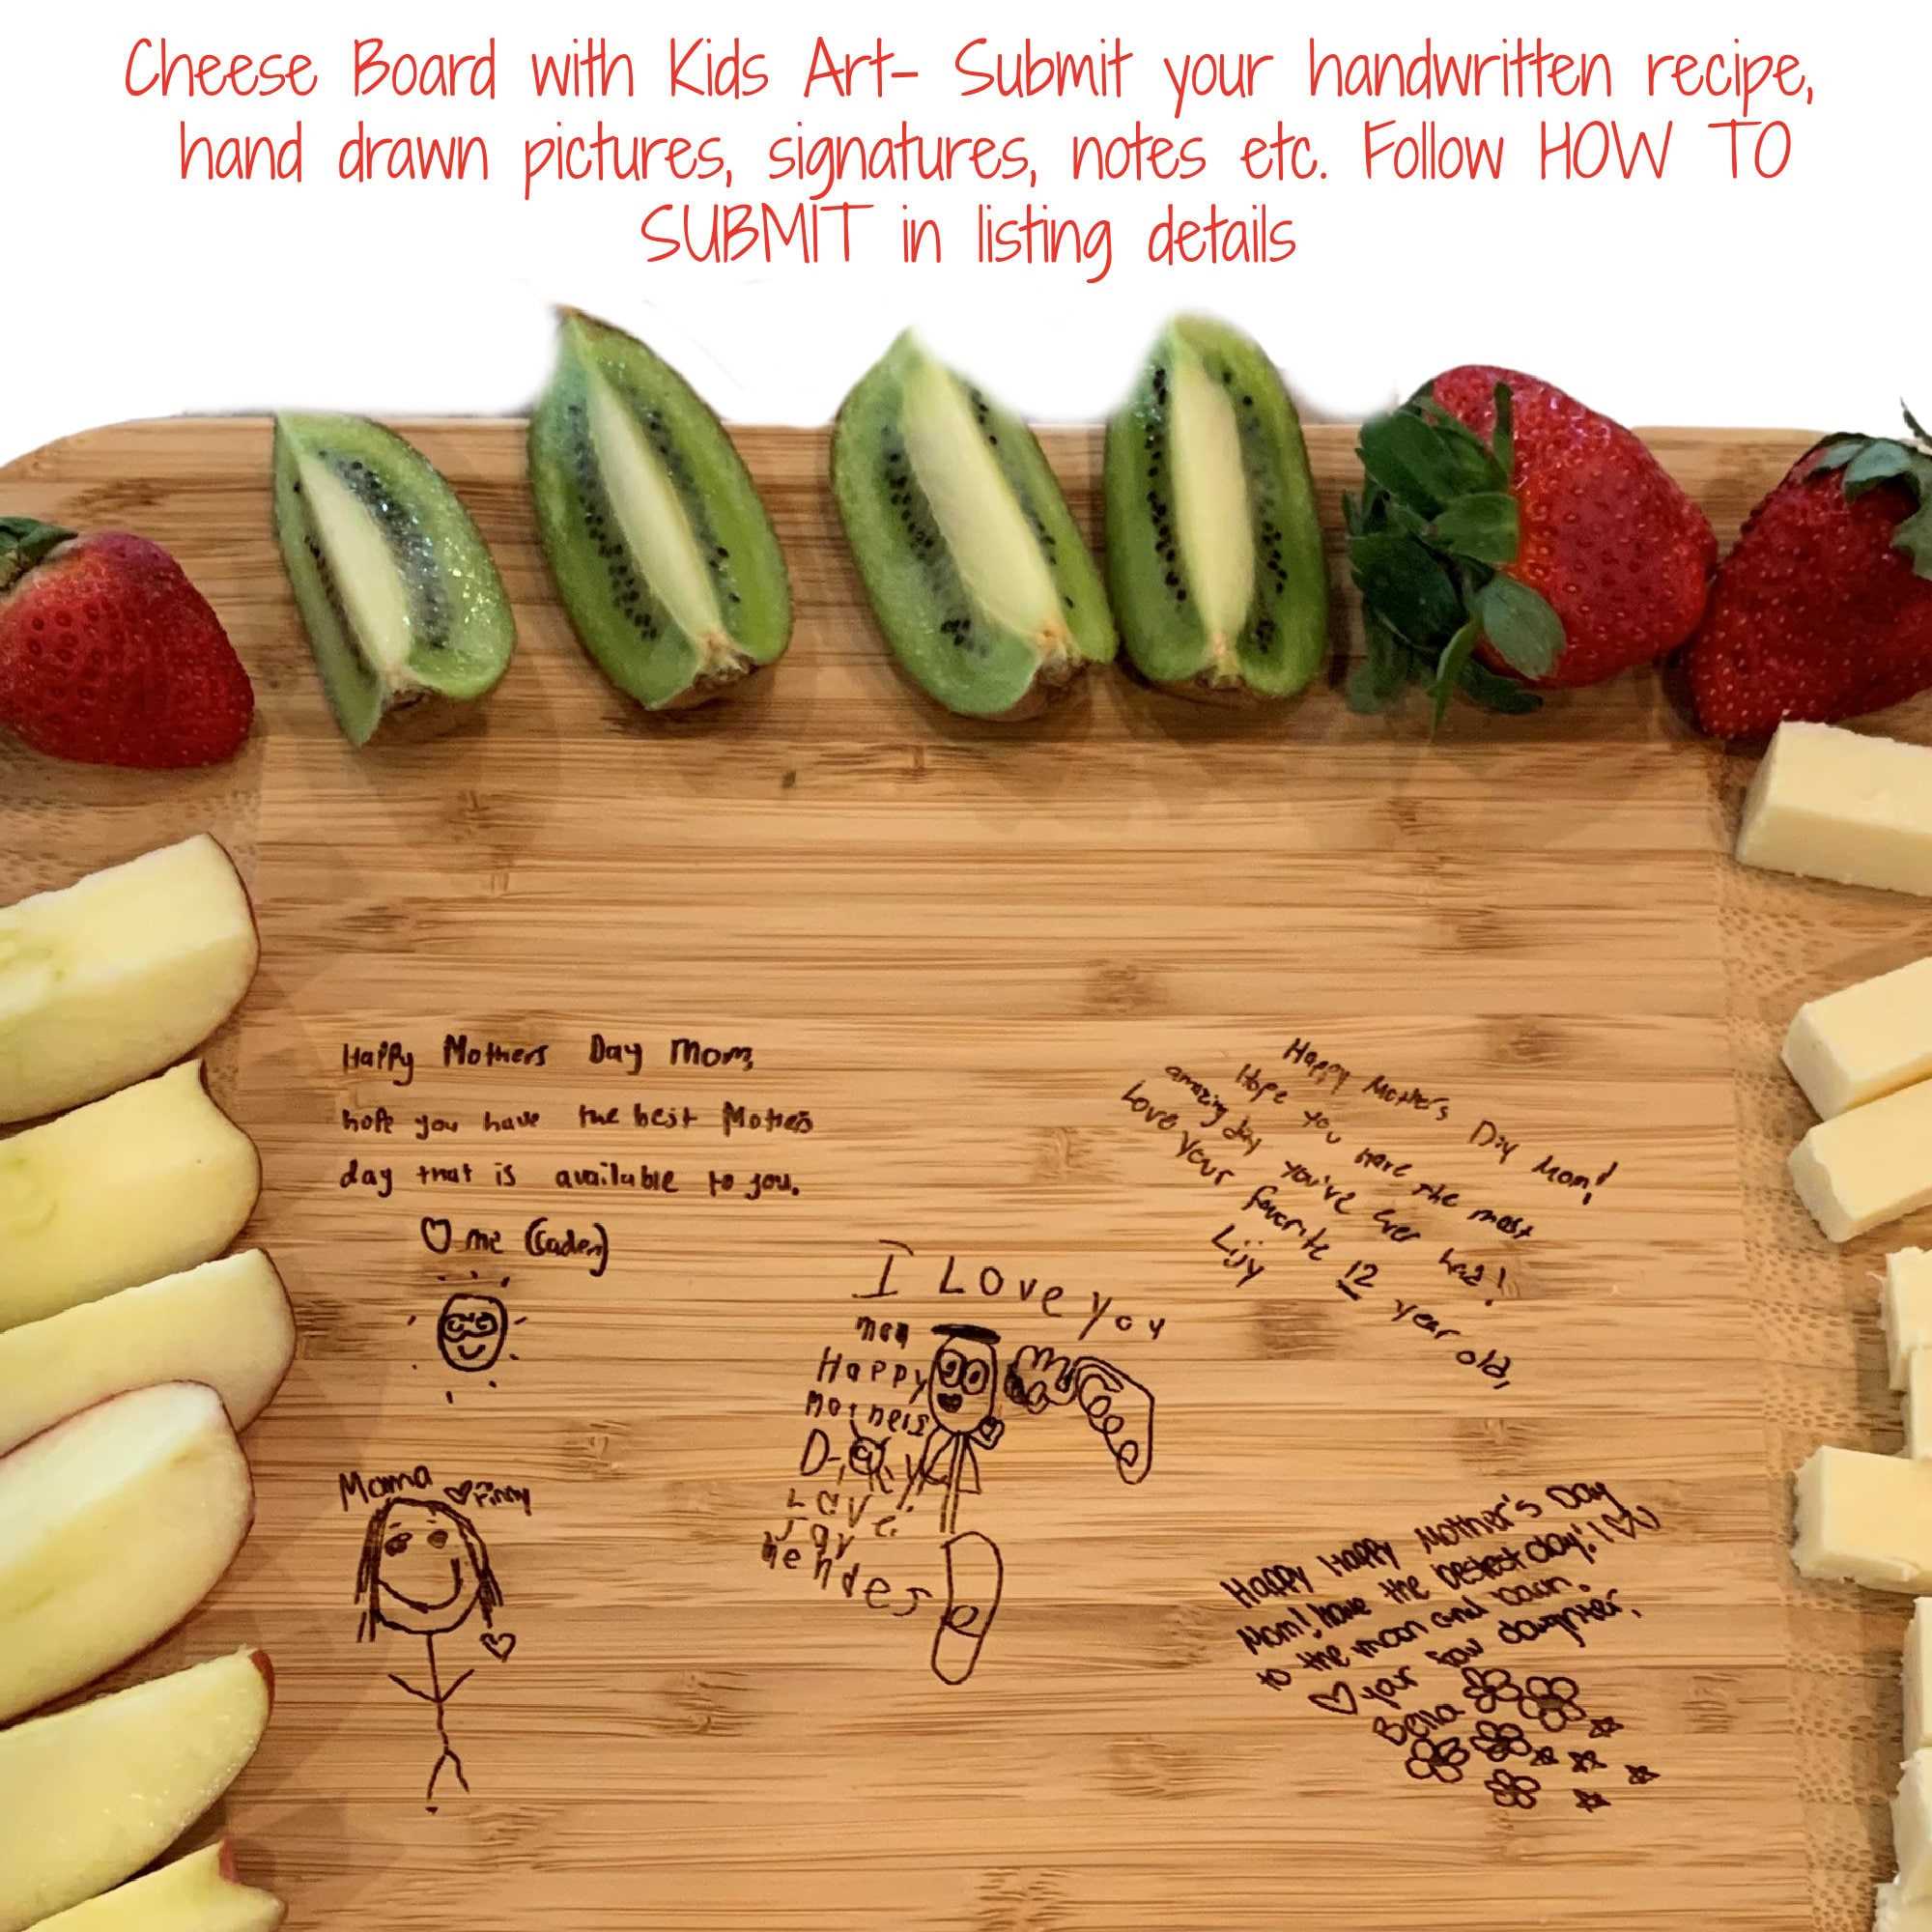 Cheese Board with Kids Art- Submit your handwritten recipe,
hand drawn pictures, signatures, notes etc. Follow HOW TO
SUBMIT in listing details
Happy Mothers Day Mom,
hope you have the best Mothers
day that is available to you.
♡ me (Caden)
Happy Mother's Day Mom!
Hope you have the most
amazing day you've ever had!
Love your favorite 12 year old,
I Love you
mom
Happy
mothers
Day
Love,
Mama ♡ Finny
Happy Happy Mother's Day
Mom! have the bestest day!!
to the moon and back.
♡ your fav daughter,
Bella